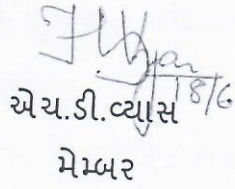 18/6
એચ.ડી.વ્યાસ
મેમ્બર